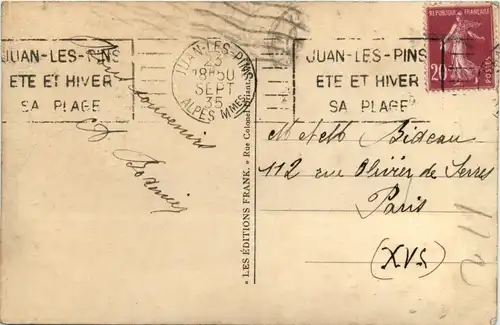 JUAN-LES-PINS
ETE ET HIVER
SA PLAGE
JUAN-LES-PINS
23
18H50
SEPT
35
ALPES MMES
JUAN-LES-PINS
ETE ET HIVER
SA PLAGE
REPUBLIQUE FRANÇAISE
20
POSTES
souvenirs
"LES ÉDITIONS FRANK." Rue Colonel
Bideau
112 rue Olivier de Serres
Paris
(XVS)